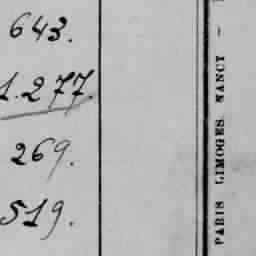 643.
1.277.
269.
519.
PARIS LIMOGES NANCY –